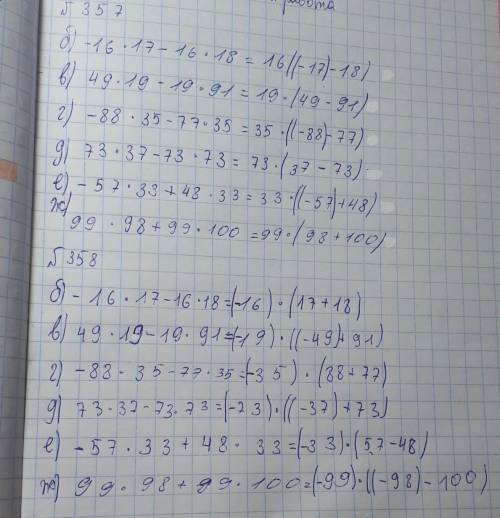 работа
№357
б) -16·17-16·18=16((-17)-18)
в) 49·19-19·91=19·(49-91)
г) -88·35-77·35=35·((-88)-77)
д) 73·37-73·73=73·(37-73)
е) -57·33+48·33=33·((-57)+48)
ж) 99·98+99·100=99·(98+100)
№358
б) -16·17-16·18=(-16)·(17+18)
в) 49·19-19·91=(-19)·((-49)+91)
г) -88·35-77·35=(-35)·(88+77)
д) 73·37-73·73=(-73)·((-37)+73)
е) -57·33+48·33=(-33)·(57-48)
ж) 99·98+99·100=(-99)·((-98)-100)